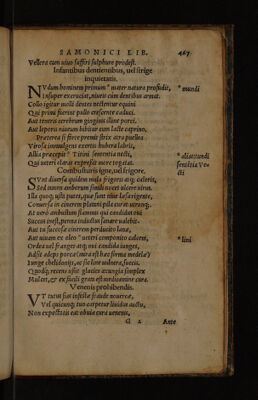 SAMONICI LIB.
467
Vellera cum uiuo suffiri sulphure prodest.
Infantibus dentientibus, uel strige
inquietatis.
NVdum hominem primum * mater natura profudit,
* mundi
Insuper excruciat, niueis cum dentibus armat.
Collo igitur molli dentes nectentur equini
Qui prima fuerint pullo crescente caduci.
Aut teneris cerebrum gingiuis illine porci.
Aut leporis niueum bibitur cum lacte caprino,
Præterea si forte premit strix atra puellos
Virosa immulgens exertis hubera labris,
Allia præcepit * Titini sententia necti,
* aliæ
Qui ueteri claras expressit more togatas.
Combusturis igne, uel frigore.
SVnt diuersa quidem mala frigoris atq; caloris,
Sed tamen amborum simili nocet ulcere uirus.
Illa quoq; usta putes, quæ sunt niue læsa rigente,
Conuersa in cinerem platani pila curat utrunq;.
At uero ambustum flammis qui candidat oui
Succus inest, penna inductus sanare ualebit.
Aut tu succosa cinerem perducito lana,
Aut niueam ex oleo * ueteri componito calcem,
* lini
Ordea uel franges atq; oui candida iunges,
Adsit adeps porcæ (mira est hæc forma medelæ)
Iunge chelidonijs, ac sic line uulnera, succis.
Quodq; recens ussit glacies axungia simplex
Mulcet, & ex facili gratum est medicamine cura.
Venenis prohibendis.
VT tutus sim infestæ fraude nouercæ,
Vel quicunq; tuo carpetur liuidus auctu,
Non expectatis eat obuia cura uenenis,
G 2
Ante